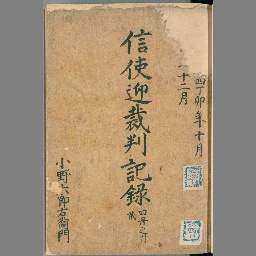 四丁卯年十月
十二月
信使迎裁判記録
小野六郎右衛門